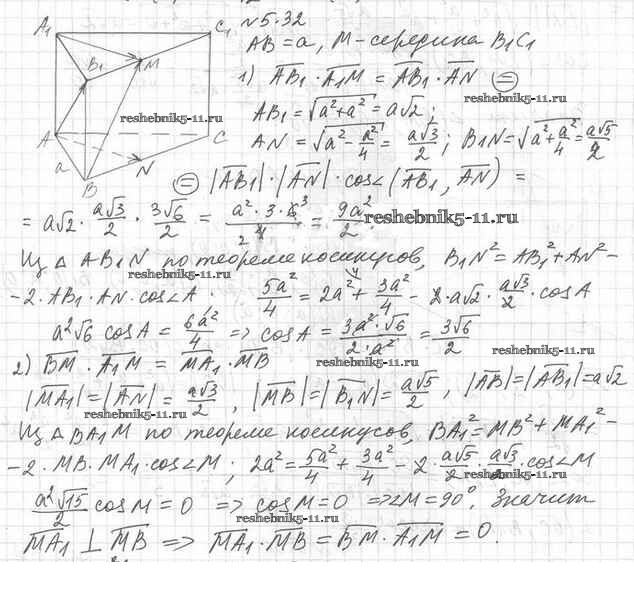 N5.32
AB=a, M-середина B₁C₁
1) AB₁·A₁M = AB₁·AN (=)
AB₁=√(a²+a²)=a√2;
AN=√(a²-a²/4)=a√3/2; B₁N=√(a²+a²/4)=a√5/2
(=) |AB₁|·|AN|·cos∠(AB₁, AN) =
= a√2·a√3/2·3√6/2 = a²·3·6³/2·4 = 9a²/2.
Из △ AB₁N по теореме косинусов, B₁N²=AB₁²+AN²-
-2·AB₁·AN·cos∠A. 5a²/4=2a²+3a²/4-2·a√2·a√3/2·cosA
a²√6 cosA=6a²/4 => cosA=3a²·√6/2·a²=3√6/2
2) BM·A₁M = MA₁·MB
|MA₁|=|AN|=a√3/2, |MB|=|B₁N|=a√5/2, |AB|=|AB₁|=a√2
Из △BA₁M по теореме косинусов, BA₁²=MB²+MA₁²-
-2·MB·MA₁·cos∠M; 2a²=5a²/4+3a²/4-2·a√5/2·a√3/2·cos∠M
a²√15/2 cosM=0 => cosM=0 =>∠M=90°, Значит
MA₁ ⊥ MB => MA₁·MB=BM·A₁M=0.
A₁
C₁
B₁
M
A
C
a
N
B
reshebnik5-11.ru
reshebnik5-11.ru
reshebnik5-11.ru
reshebnik5-11.ru
reshebnik5-11.ru
reshebnik5-11.ru
reshebnik5-11.ru
reshebnik5-11.ru
reshebnik5-11.ru